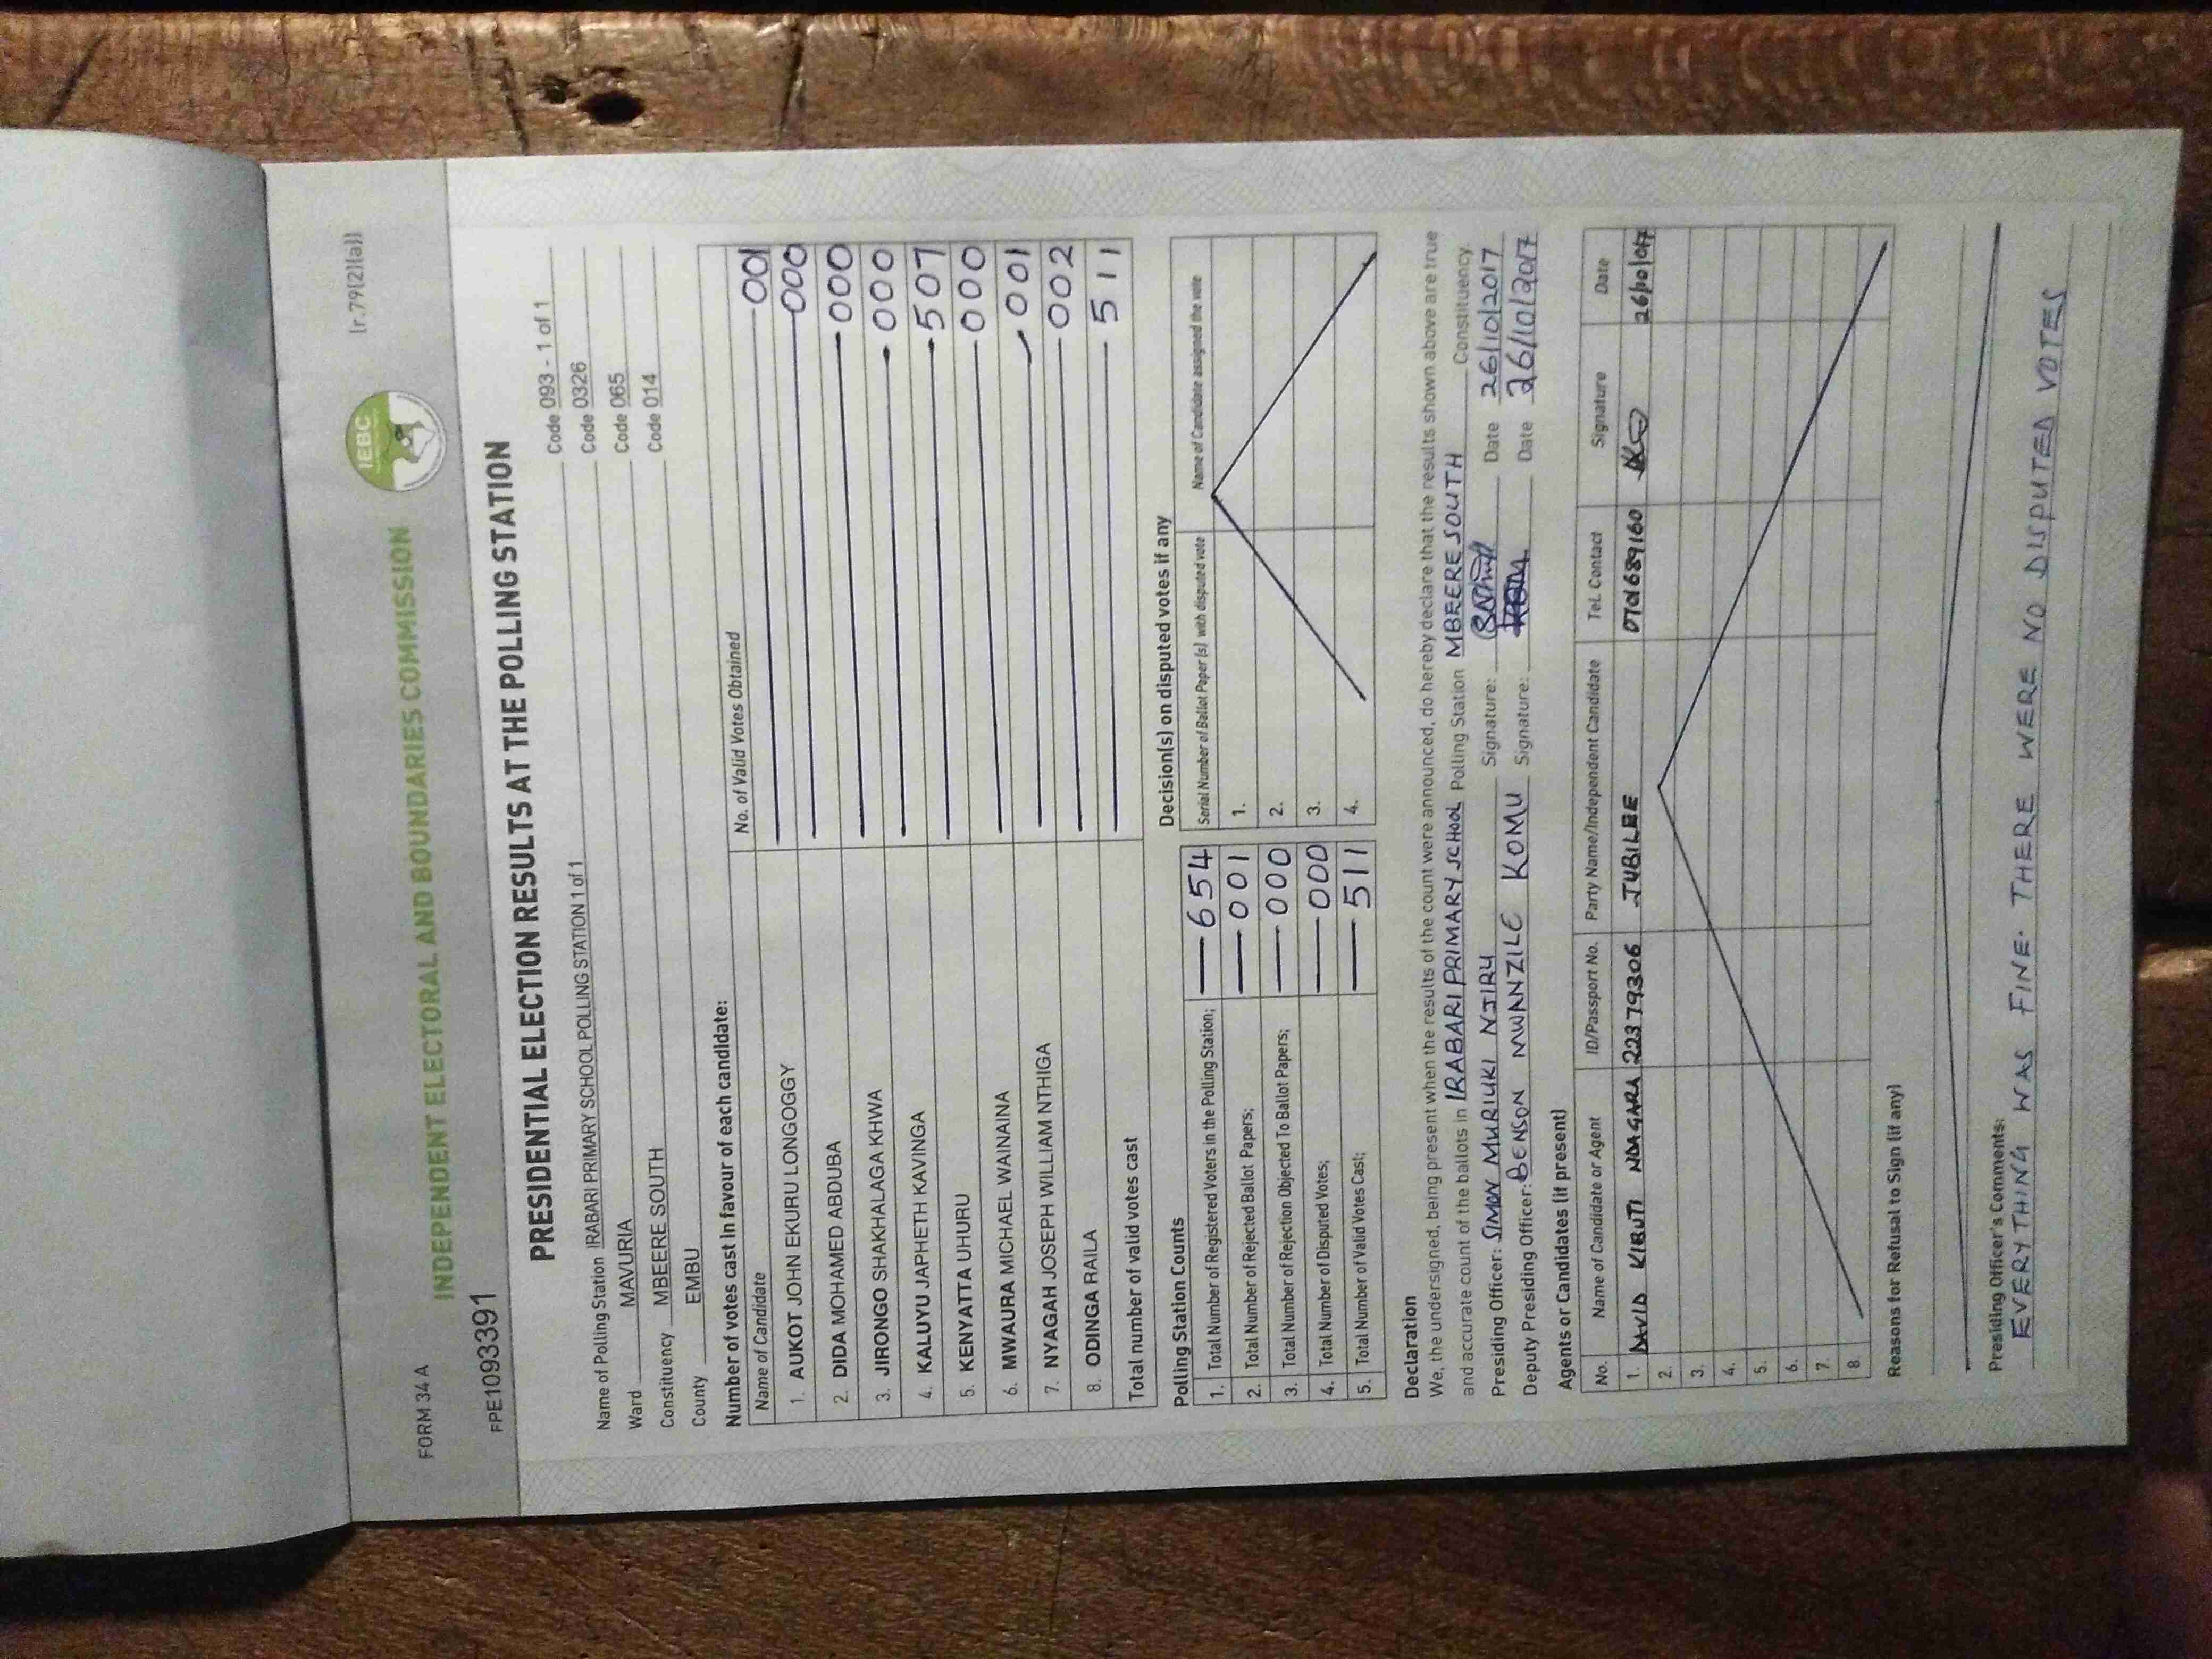 FORM 34 A
[r.79(2)(a)]
IEBC
INDEPENDENT ELECTORAL AND BOUNDARIES COMMISSION
FPE1093391
PRESIDENTIAL ELECTION RESULTS AT THE POLLING STATION
Name of Polling Station IRABARI PRIMARY SCHOOL POLLING STATION 1 of 1 Code 093 - 1 of 1
Ward MAVURIA Code 0326
Constituency MBEERE SOUTH Code 065
County EMBU Code 014
Number of votes cast in favour of each candidate:
Name of Candidate No. of Valid Votes Obtained
1. AUKOT JOHN EKURU LONGOGGY 001
2. DIDA MOHAMED ABDUBA 000
3. JIRONGO SHAKHALAGA KHWA 000
4. KALUYU JAPHETH KAVINGA 000
5. KENYATTA UHURU 507
6. MWAURA MICHAEL WAINAINA 000
7. NYAGAH JOSEPH WILLIAM NTHIGA 001
8. ODINGA RAILA 002
Total number of valid votes cast 511
Polling Station Counts
1. Total Number of Registered Voters in the Polling Station; 654
2. Total Number of Rejected Ballot Papers; 001
3. Total Number of Rejection Objected To Ballot Papers; 000
4. Total Number of Disputed Votes; 000
5. Total Number of Valid Votes Cast; 511
Decision(s) on disputed votes if any
Serial Number of Ballot Paper (s) with disputed vote Name of Candidate assigned the vote
1.
2.
3.
4.
Declaration
We, the undersigned, being present when the results of the count were announced, do hereby declare that the results shown above are true
and accurate count of the ballots in IRABARI PRIMARY SCHOOL Polling Station MBEERE SOUTH Constituency.
Presiding Officer: SIMON MURIUKI NJIRU Signature: Date 26/10/2017
Deputy Presiding Officer: BENSON MWANZILE KOMU Signature: Date 26/10/2017
Agents or Candidates (if present)
No. Name of Candidate or Agent ID/Passport No. Party Name/Independent Candidate Tel. Contact Signature Date
1. DAVID KIBUTI NDAGARA 22379306 JUBILEE 0701689160 26/10/017
2.
3.
4.
5.
6.
7.
8.
Reasons for Refusal to Sign (if any)
Presiding Officer's Comments:
EVERYTHING WAS FINE. THERE WERE NO DISPUTED VOTES